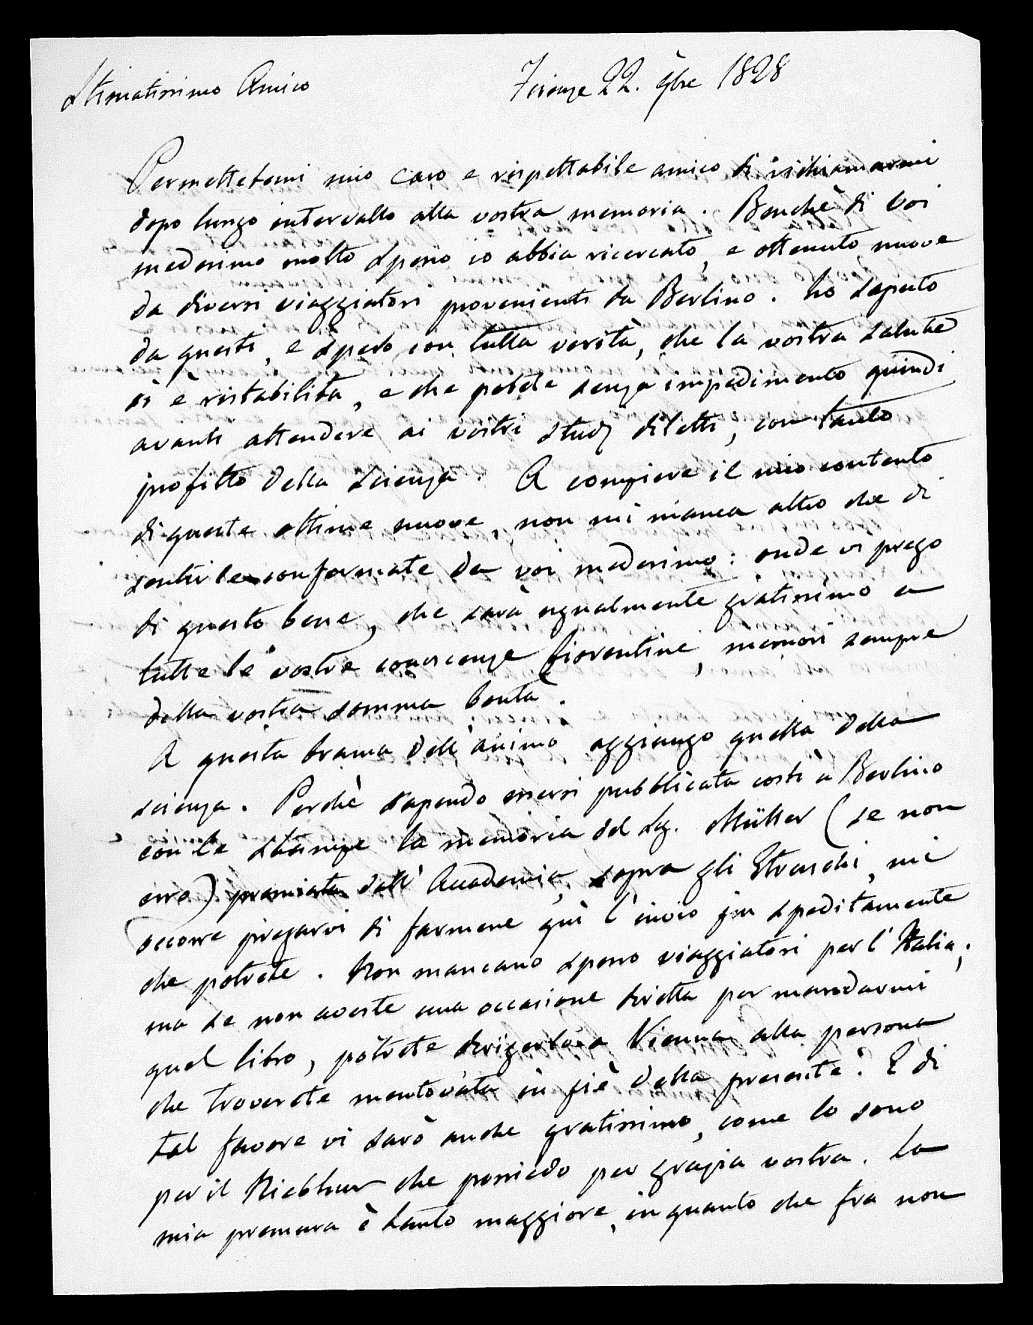 Stimatissimo Amico Firenze 22. 9bre 1828
Permettetemi mio caro e rispettabile amico di richiamarmi
dopo lungo intervallo alla vostra memoria. Benchè di voi
medesimo molto spesso io abbia ricercato, e ottenuto nuove
da diversi viaggiatori provenienti da Berlino. ho saputo
da questi, e spero con tutta verità, che la vostra salute
si è ristabilita, e che potete senza impedimento quindi
avanti attendere ai vostri studj diletti, con tanto
profitto della scienza. A compiere il mio contento
di queste ottime nuove, non mi manca altro che di
sentirle confermate da voi medesimo: onde vi prego
di questo bene, che sarà egualmente gratissimo a
tutte le vostre conoscenze fiorentine, memori sempre
della vostra somma bontà.
A questa brama dell'animo aggiungo quella della
scienza. Perchè sapendo essersi pubblicata costì a Berlino
con le stampe la memoria del Sig. Müller (se non
erro) premiata dall'Accademia, sopra gli Etruschi, mi
occorre pregarvi di farmene quì l'invio più speditamente
che potrete. Non mancano spesso viaggiatori per l'Italia;
ma se non aveste una occasione diretta per mandarmi
quel libro, potrete dirigerlo a Vienna alla persona
che troverete mentovata in piè della presente. E di
tal favore vi sarò anche gratissimo, come lo sono
per il Niebhur che possiedo per grazia vostra. La
mia premura è tanto maggiore, in quanto che fra non